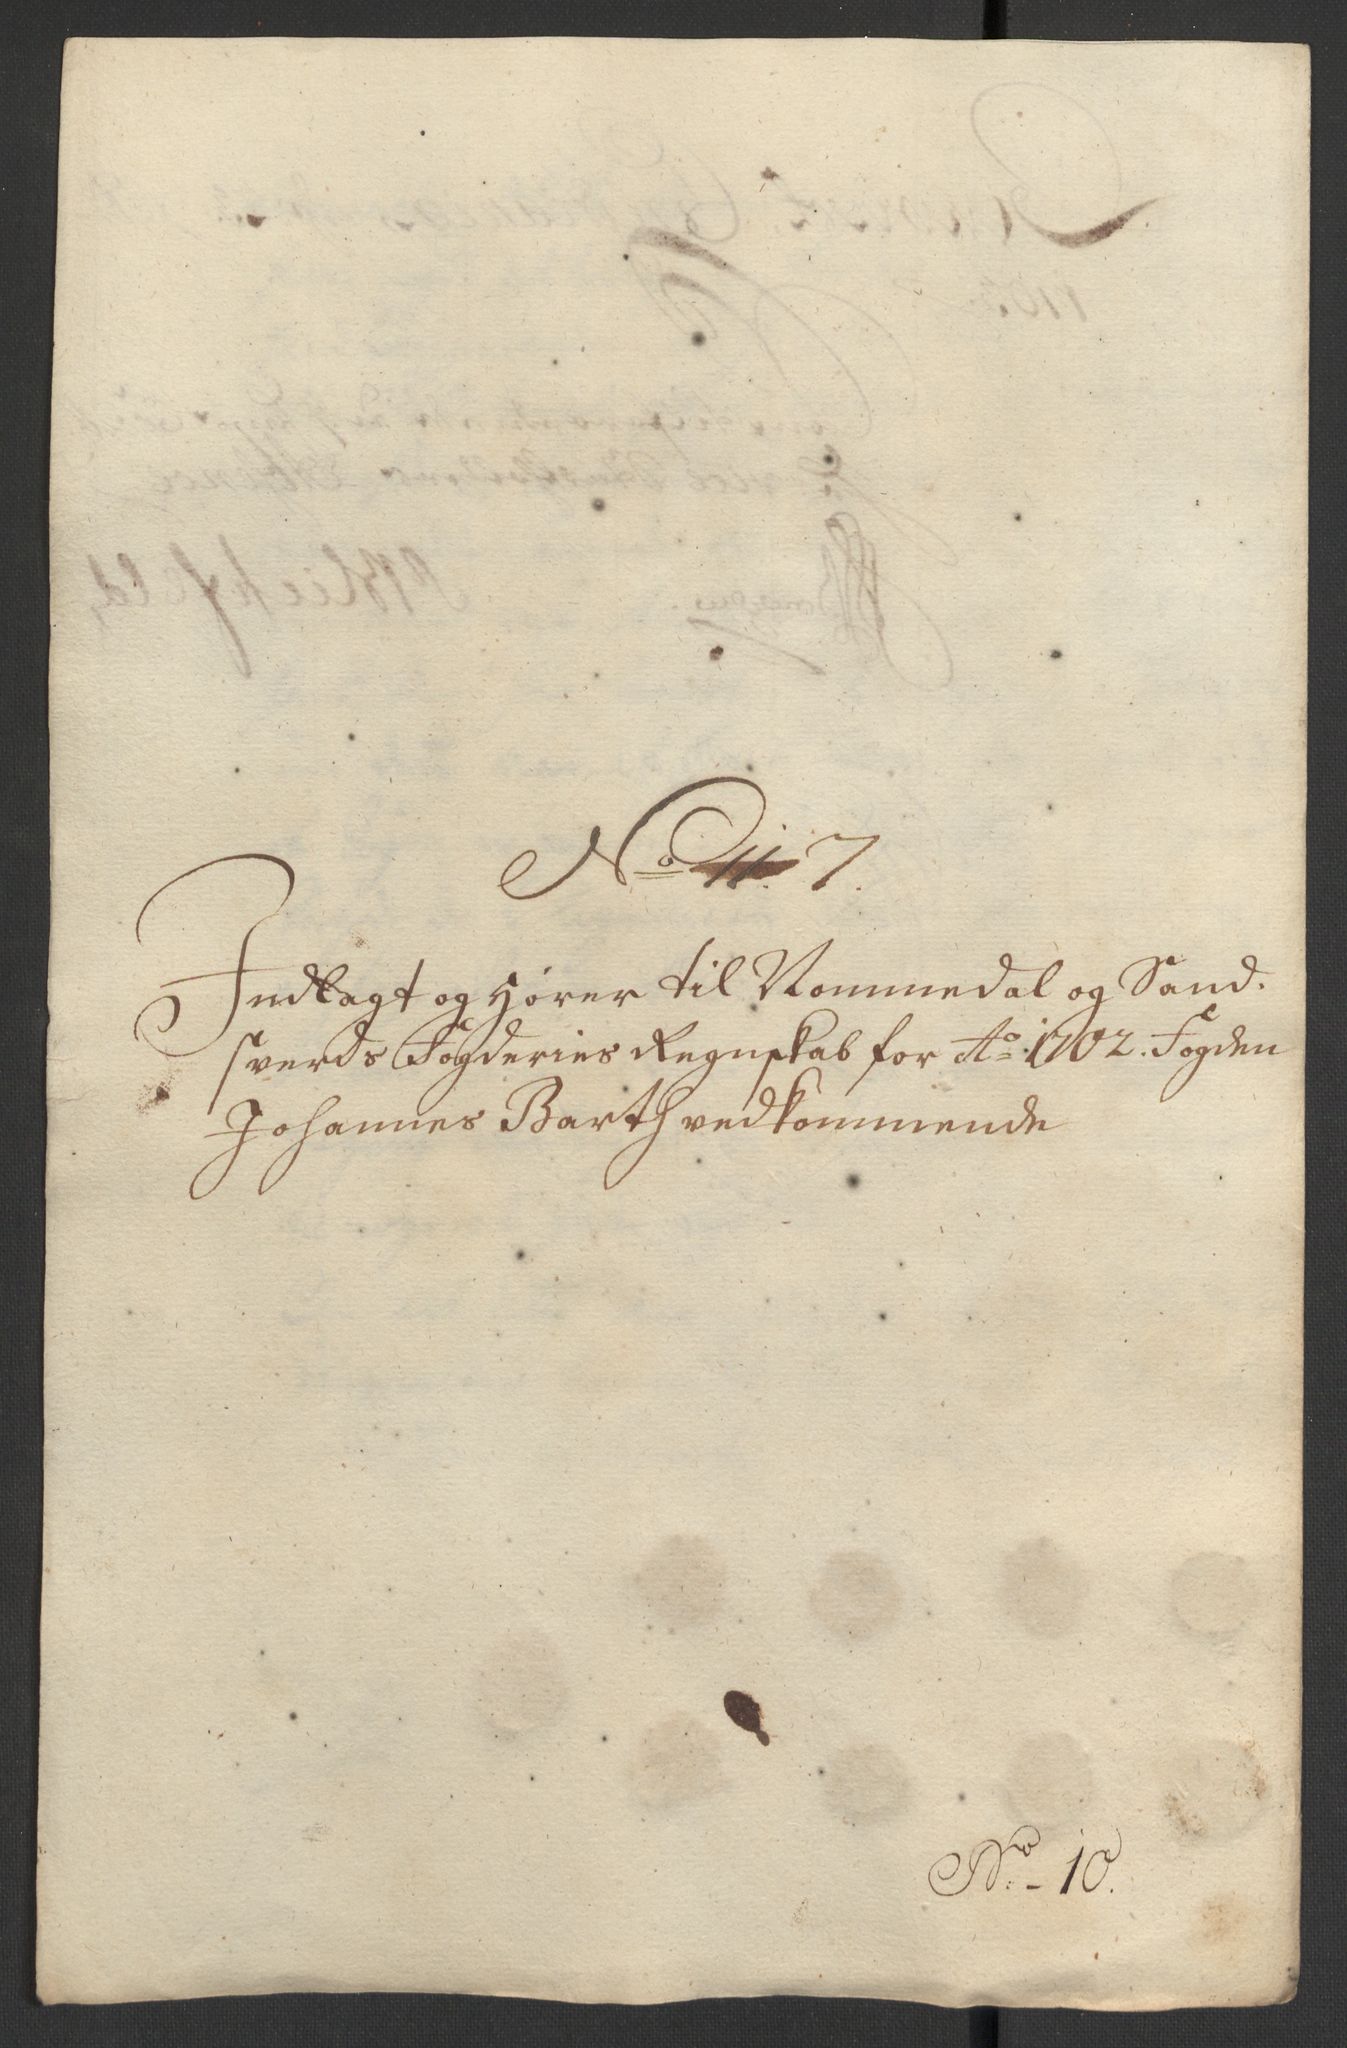 No 11. 7.
Indlagt og Hører til Nommedal og Sand-
sverds Fogderies Regnskab for Ao 1702. Fogden
Johannes Barth vedkommende
No. 10.